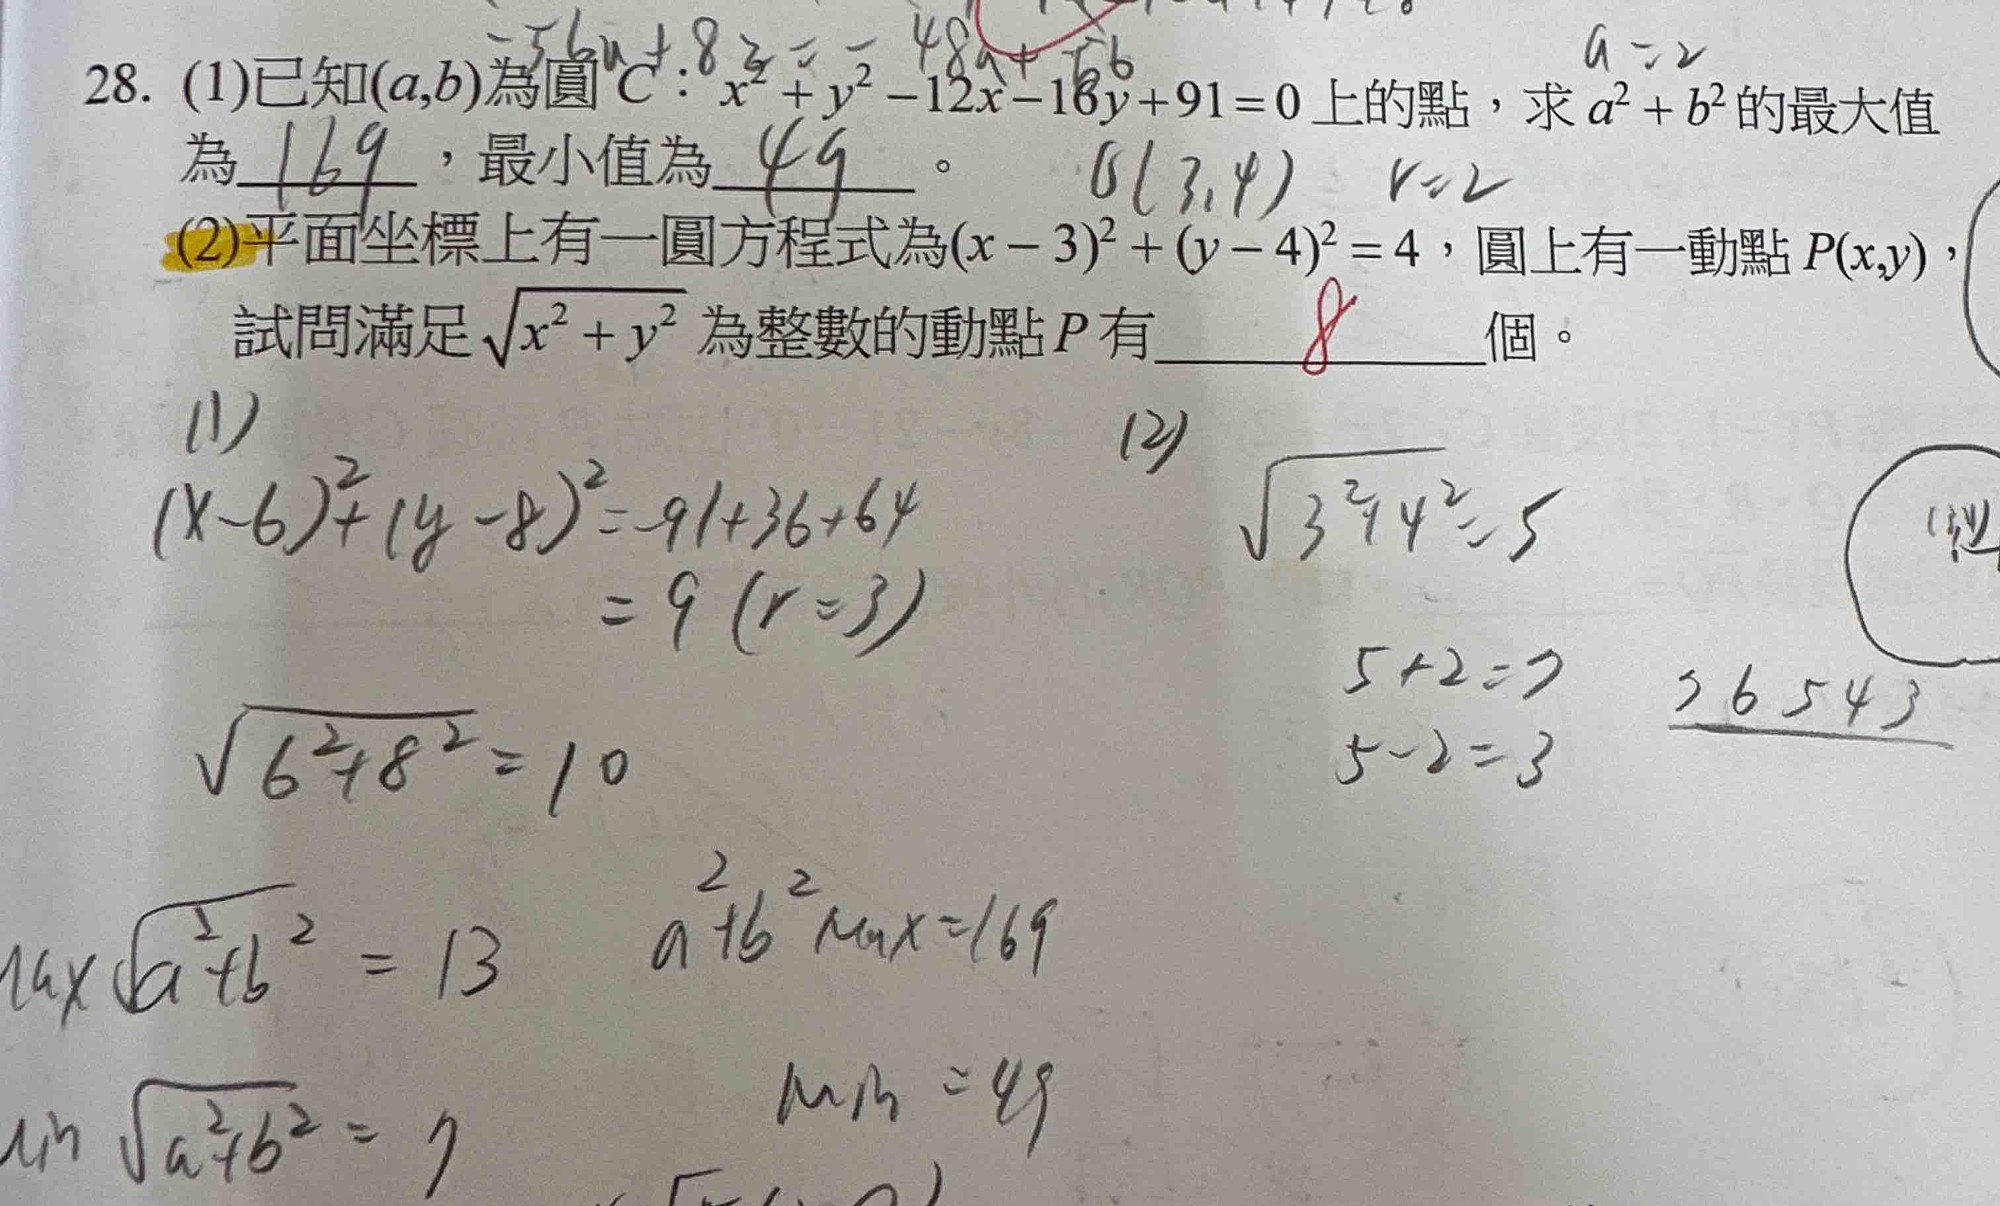 -56a+83=-48a+56
a=2
28. (1)已知(a,b)為圓C：x²+y²-12x-16y+91=0上的點，求a²+b²的最大值
為 169 ，最小值為 49 。
O(3,4) r=2
(2)平面坐標上有一圓方程式為(x-3)²+(y-4)²=4，圓上有一動點P(x,y)，
試問滿足√(x²+y²)為整數的動點P有 8 個。
(1)
(x-6)²+(y-8)²=-91+36+64
=9 (r=3)
√(6²+8²)=10
Max √(a²+b²)=13
a²+b² Max=169
Min √(a²+b²)=7
Min =49
(2)
√(3²+4²)=5
5+2=7
5-2=3
7 6 5 4 3
(3,4)